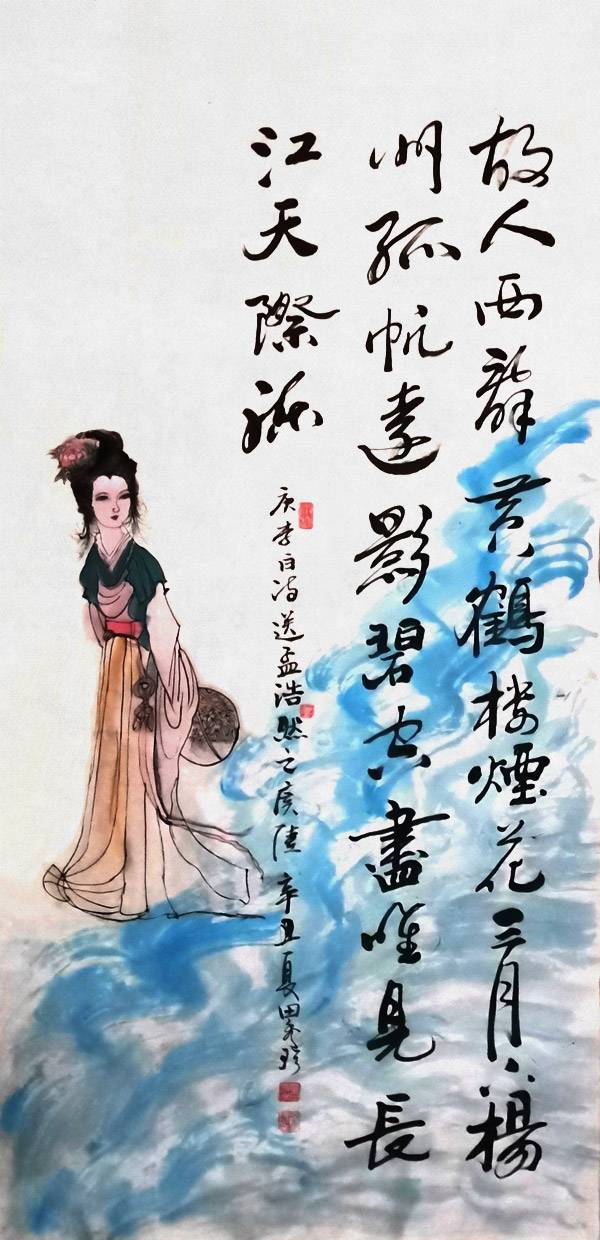 故人西辭黄鶴楼煙花三月下楊
州孤帆遠影碧空盡唯見長
江天際流
唐李白诗送孟浩然之廣陵 辛丑夏田